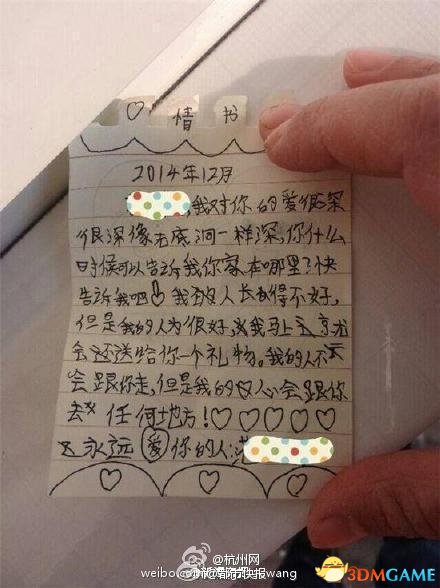 ♡情书
2014年12月
,我对你的爱很深
很深像无底洞一样深,你什么
时候可以告诉我你家在哪里?快
告诉我吧!我本人长得不好,
但是我的人为很好,我马上
会还送给你一个礼物。我的人不
会跟你走,但是我的心会跟你
去任何地方!♡♡♡♡♡
永远爱你的人:范
杭州网
weibo.com
wang
3DMGAME